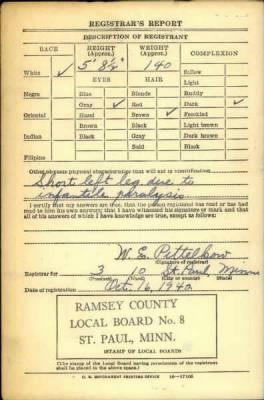 REGISTRAR'S REPORT
DESCRIPTION OF REGISTRANT
RACE HEIGHT (Approx.) WEIGHT (Approx.) COMPLEXION
White ✓ 5' 8½" 140 Sallow
EYES HAIR Light
Negro Blue Blonde Ruddy
Gray ✓ Red Dark ✓
Oriental Hazel Brown ✓ Freckled
Brown Black Light brown
Indian Black Gray Dark brown
Bald Black
Filipino
Other obvious physical characteristics that will aid in identification
Short left leg due to
infantile paralysis
I certify that my answers are true; that the person registered has read or has had
read to him his own answers; that I have witnessed his signature or mark and that
all of his answers of which I have knowledge are true, except as follows:
W. E. Pittelkow
(Signature of registrar)
Registrar for 3 10 St. Paul Minn
(Precinct) (Ward) (City or county) (State)
Date of registration Oct. 16, 1940
RAMSEY COUNTY
LOCAL BOARD No. 8
ST. PAUL, MINN.
STAMP OF LOCAL BOARD
(The stamp of the Local Board having jurisdiction of the registrant
shall be placed in the above space.)
U. S. GOVERNMENT PRINTING OFFICE 16—17105